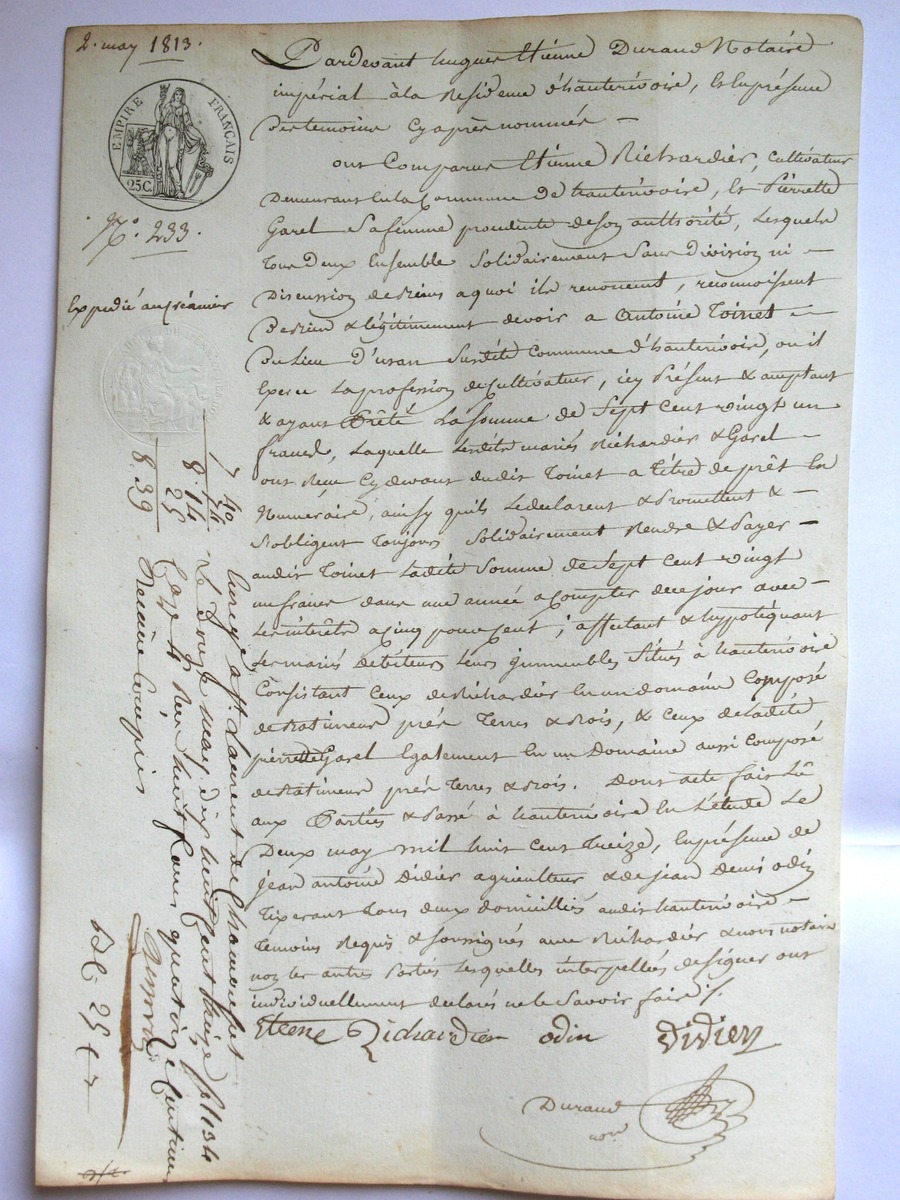 2. may 1813.
EMPIRE FRANÇAIS
25C.
N.º 233.
Expedié au Créancier
Pardevant hugues Etienne Durand Notaire
impérial à la Résidence d'hauterivoire, En présence
Des temoins Cy après nommés —
ont Comparus Etienne Richardier, Cultivateur
Demeurant En la Commune De hauterivoire, Et Pierrette
Garel Sa femme procedente de son authorité, Lesquels
Tous Deux Ensemble Solidairement Sans Division ni —
Discussion de Biens a quoi ils renoncent, reconnoissent
& légitimement devoir a Antoine Toinet —
Du Lieu D'uran Susdite Commune d'hauterivoire, ou il
Exerce La profession de Cultivateur, icy Présent & acceptant
& ayant Prêté La Somme de Sept Cent vingt un
francs, Laquelle Lesdits mariés Richardier & Garel —
ont Reçu Cy devant dudit Toinet a Titre de prêt En
Numéraire, ainsy qu'ils Le déclarent & Promettent & —
S'obligent Toujours Solidairement Rendre & Payer —
audit Toinet Ladite Somme de Sept Cent vingt
un francs dans une année a Compter de ce jour avec —
Les intérêts a Cinq pour Cent ; affectant & hypotéquant
Les mariés débiteurs Leurs immeubles Situés à hauterivoire
Consistant Ceux de Richardier En un domaine Composé
de Batiments prés Terres & Bois, & Ceux de Ladite
pierrette Garel Egalement En un Domaine aussi Composé
de Batiments prés Terres & Bois. Dont acte fait Lû
aux Parties & Passé à hauterivoire En L'étude Le
Deux may mil huit Cent Treize, En présence de
Jean antoine Didier agriculteur & de jean Denis odin
Tixerant Tous deux domiciliés audit hauterivoire —
Temoins Requis & Soussignés avec Richardier & nous notaire
non les autres Parties Lesquelles interpellées de signer ont
individuellement déclaré ne le Savoir faire ./.
Etiene Richardier odin Didier
Durand
nore
7 40
74
8. 14
25
8. 39
Enregé a St. Laurent de Chamousset
Le Douze may dix huit Cent treize fo 134
Case 4 Reçu huit francs quatorze Centimes
Dixième Compris
25 c